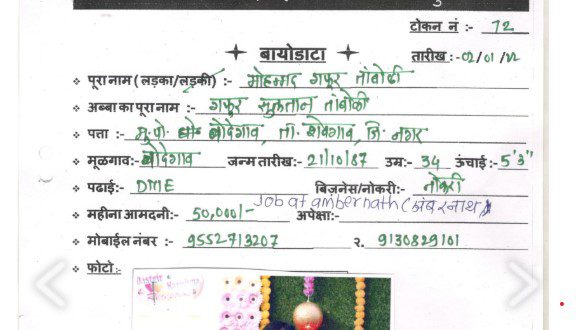 टोकन नं :- 72
बायोडाटा
तारीख :- 02/01/22
पूरा नाम (लड़का/लड़की) :- मोहम्मद गफुर तांबोळी
अब्बा का पूरा नाम :- गफुर सुलतान तांबोळी
पत्ता :- मु.पो. बोदेगाव, ता. शेवगाव, जि. नगर
मूळगाव:- बोदेगाव जन्म तारीख:- 21/10/87 उम्र:- 34 ऊंचाई:- 5'3"
पढाई:- DME बिज़नेस/नोकरी:- नोकरी
Job at ambernath (अंबरनाथ)
महीना आमदनी:- 50,000/- अपेक्षा:-
मोबाईल नंबर :- 9552713207 २. 9130829101
फोटो:-